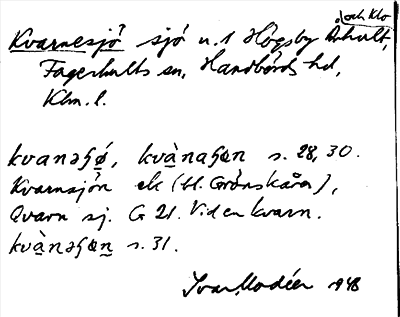 och Klo
Kvarnesjö sjö n.1 Högsby Århult,
Fagerhults sn, Handbörds hd,
Klm. l.
kvanəɧö́, kvànaɧøn s. 28, 30.
Kvarnsjön ek (bl. Grönskåra),
Qvarn sj. G 21. Vid en kvarn.
kvànəɧøn s. 31.
Ivar Modéer 1948